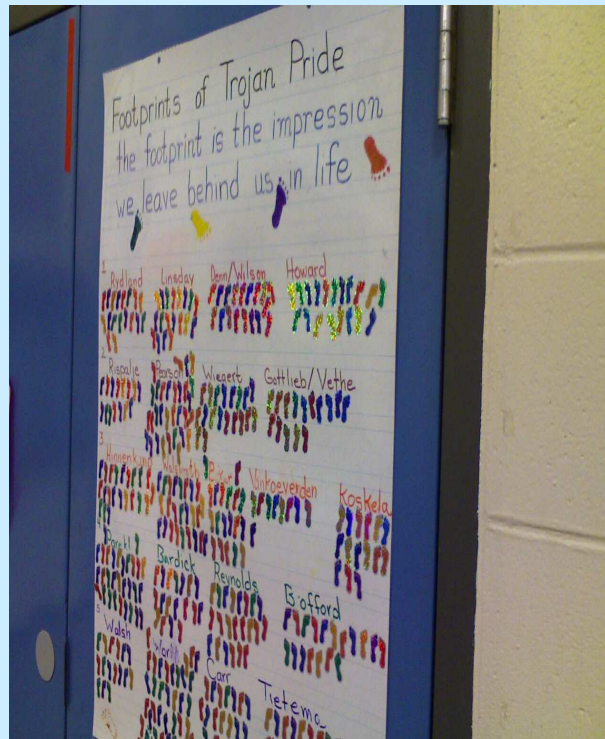 Footprints of Trojan Pride
the footprint is the impression
we leave behind us in life
1 Rydland Linsday Denn/Wilson Howard
2 Rispalje Pearson Wiegert Gottlieb/Vethe
3 Vankoeverden Koskela
Bardick Reynolds Gofford
5 Walsh Carr Tietema